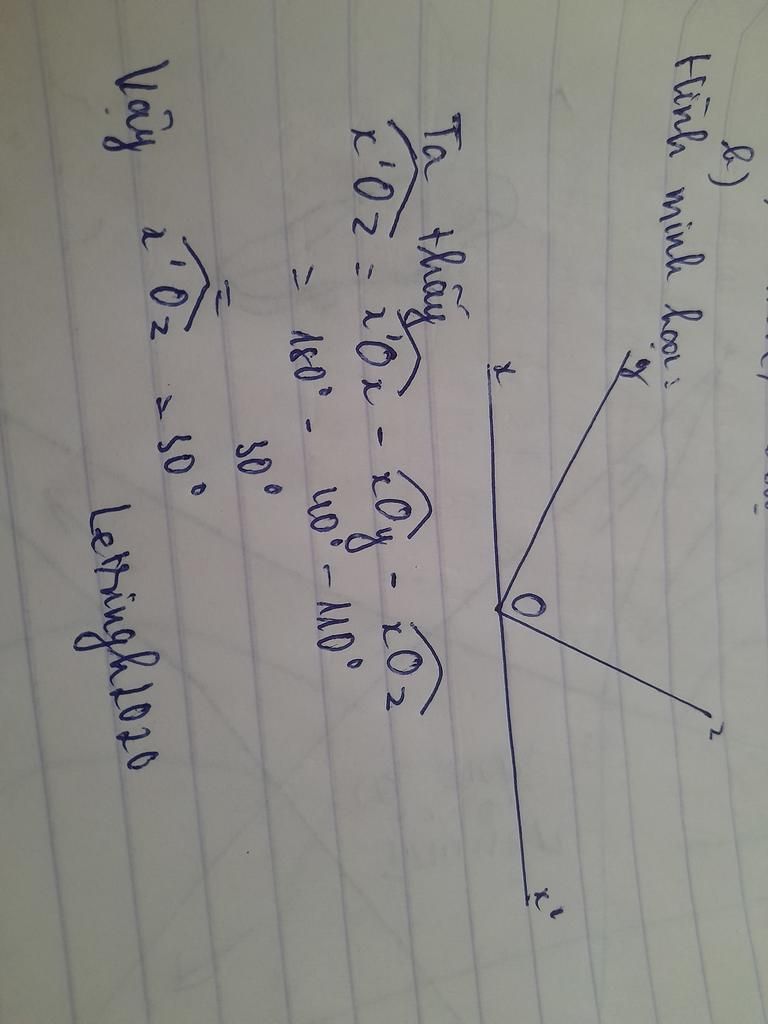 b)
Hình minh họa:
y
z
x
O
x'
Ta thấy
x'Oz = x'Ox - xOy - xOz
= 180° - 40° - 110°
= 30°
Vậy x'Oz = 30°
Lettringh2020